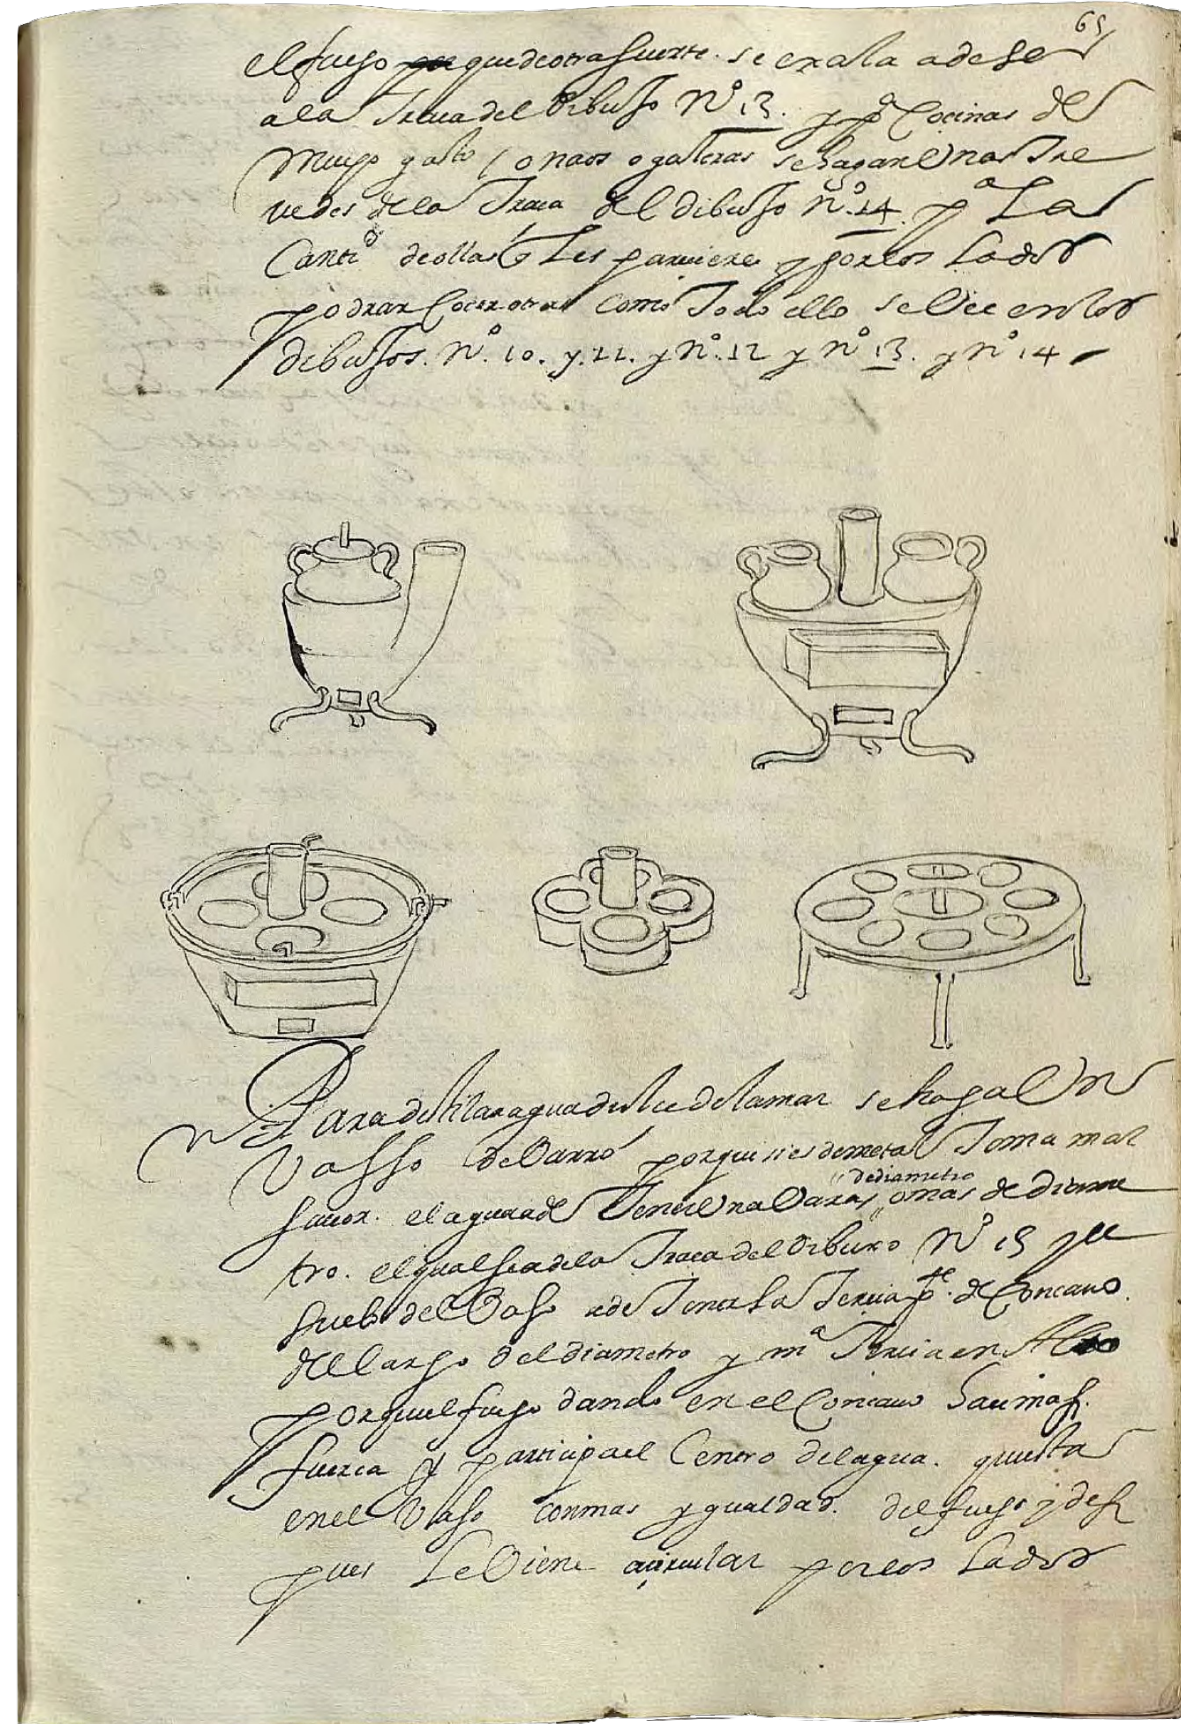 65
el fuego que de otra suerte se exala a de ser
a la Traça del Dibusso Nº 13. y pª Cocinas de
mucho gasto / o naos o galeras se hagan Unas Tre
vedes de la Traça del dibusso nº 14. pª La
Cantid de ollas q Les pareciere y por los Lados
podran Cocer otras como Todo ello se Vee en los
dibussos. Nº. 10. y. 11. y Nº. 12 y Nº 13. y nº 14
Para destilar agua dulce de la mar se haga Un
Vasso de Varro porque si es de metal Toma mal
savor. el agua a de Tener Una Vara
de diametro
o mas de Diame
tro. el qual sea de la Traça del Dibuxo Nº 15 y el
suelo del Vaso a de Tener La Tercia pte. de Concavo.
del Largo del diametro y mª Tercia en
porque el fuego dando en el Concavo
fuerça y participa el Centro del agua. questa
en el Vaso con mas ygualdad. del fuego y des
pues Le Viene a circular por los Lados